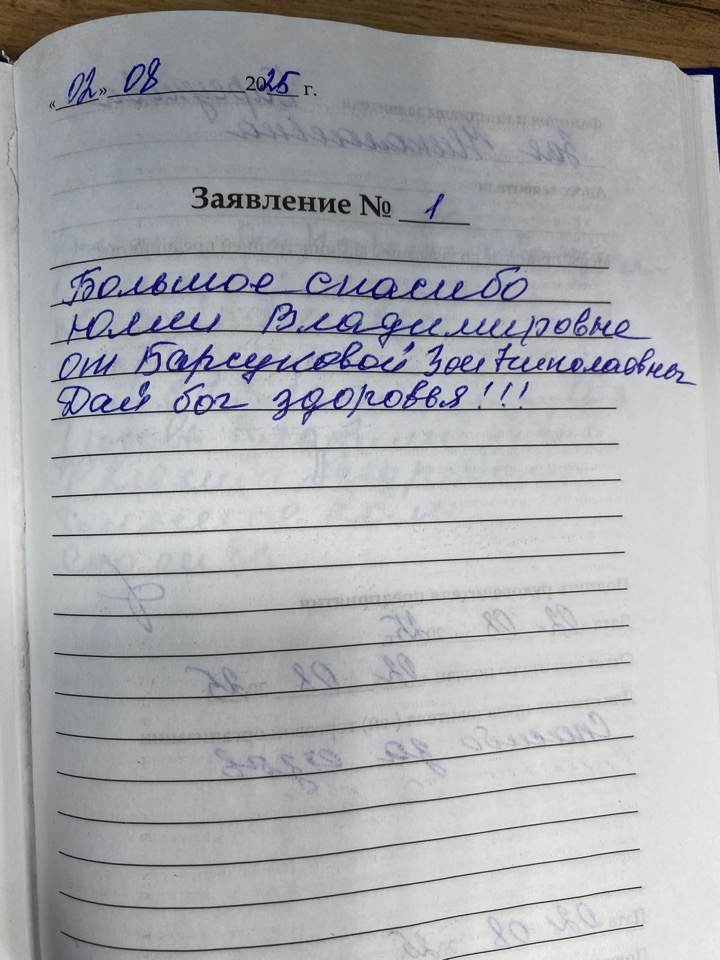 «02» 08 2025 г.
Заявление № 1
Большое спасибо
Юлии Владимировне
от Барсуковой Зои Николаевны
Дай бог здоровья!!!